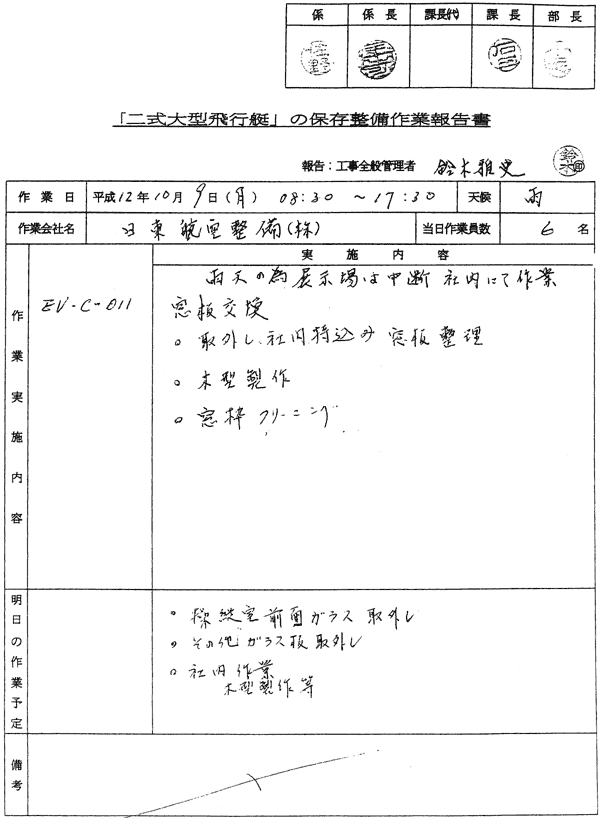 係 係長 課長(代) 課長 部長
「二式大型飛行艇」の保存整備作業報告書
報告：工事全般管理者 鈴木雅史
作業日 平成12年10月9日(月) 08:30 ～17:30 天候 雨
作業会社名 日東航空整備(株) 当日作業員数 6名
作業実施内容
実施内容
EV-C-011
雨天の為展示場は中断 社内にて作業
窓板交換
○ 取外し、社内持込み 窓板整理
○ 木型製作
○ 窓枠 クリーニング
明日の作業予定
○ 操縦室前面ガラス 取外し
○ その他 ガラス板 取外し
○ 社内作業
木型製作等
備考